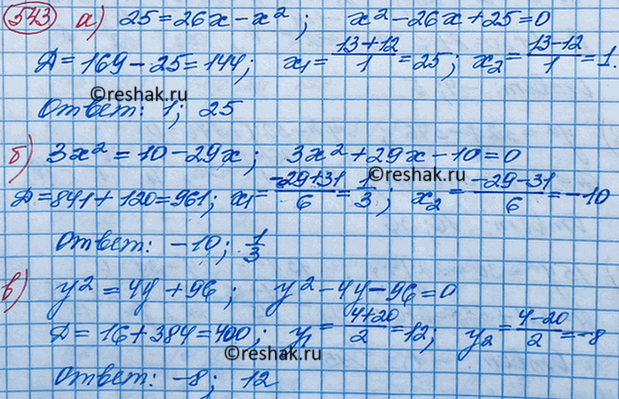 543 а) 25=26x-x²; x²-26x+25=0
Д=169-25=144; x₁=(13+12)/1=25; x₂=(13-12)/1=1.
©reshak.ru
Ответ: 1; 25
б) 3x²=10-29x; 3x²+29x-10=0
Д=841+120=961; x₁=(-29+31)/6=1/3; x₂=(-29-31)/6=-10
©reshak.ru
Ответ: -10; 1/3
в) y²=4y+96; y²-4y-96=0
Д=16+384=400; y₁=(4+20)/2=12; y₂=(4-20)/2=-8
©reshak.ru
Ответ: -8; 12